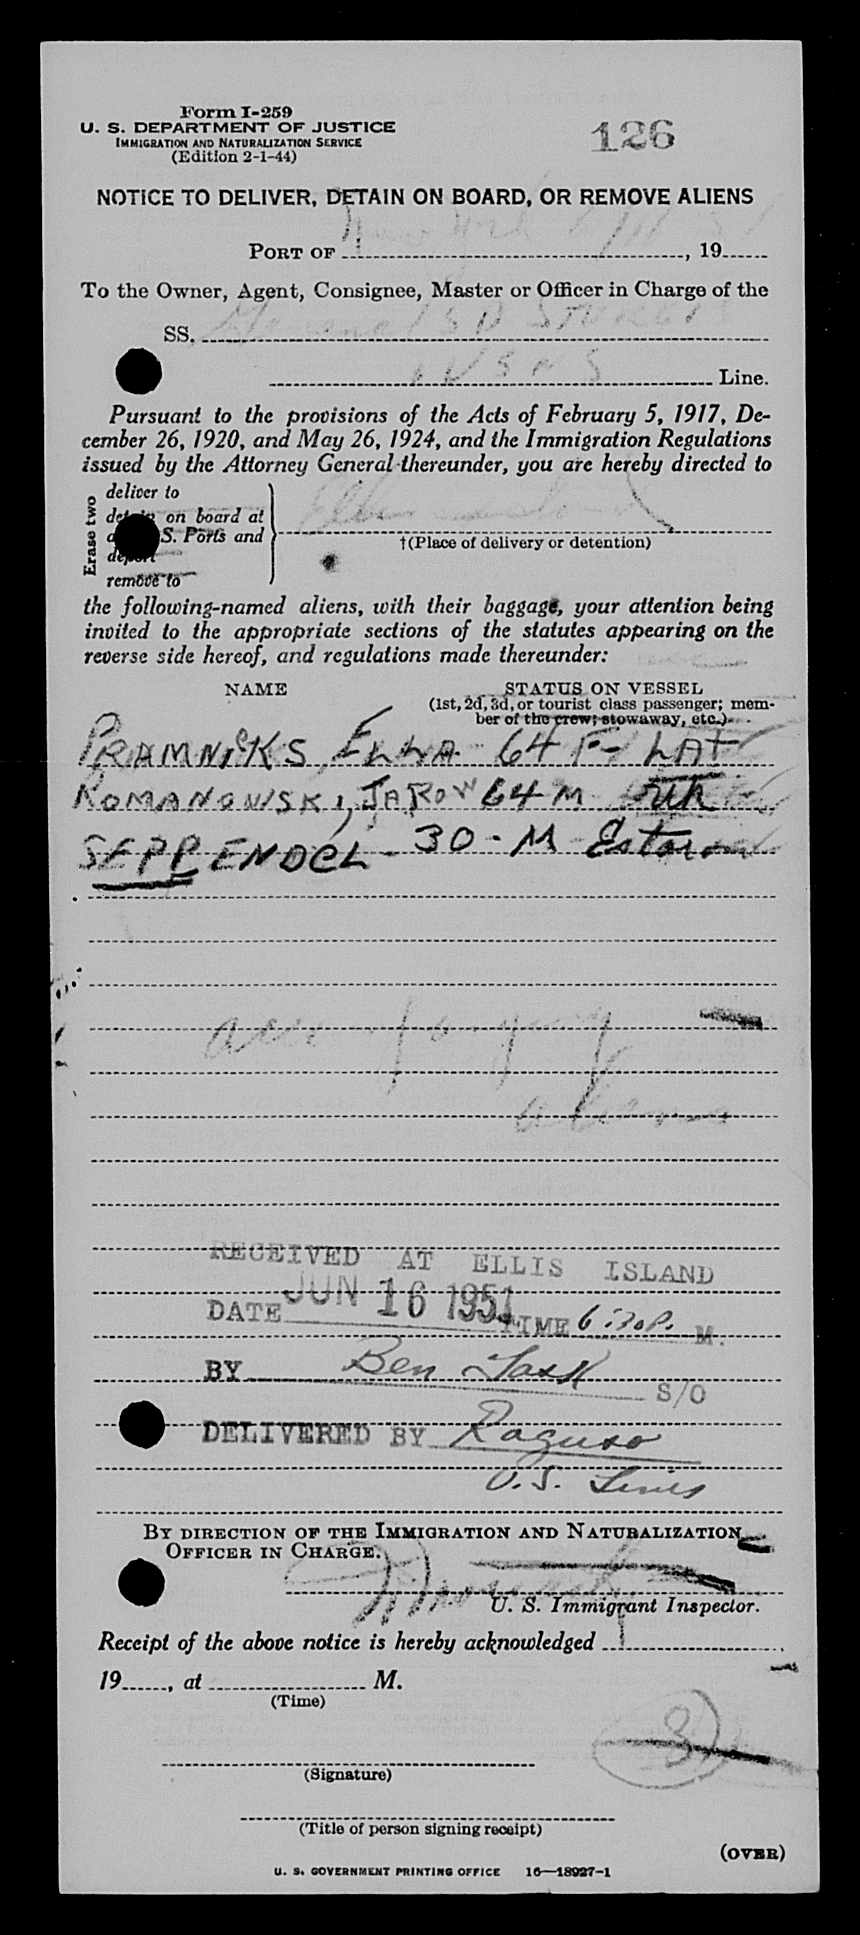 Form I-259
U. S. DEPARTMENT OF JUSTICE
IMMIGRATION AND NATURALIZATION SERVICE
(Edition 2-1-44)
126
NOTICE TO DELIVER, DETAIN ON BOARD, OR REMOVE ALIENS
PORT OF New York 6/ , 19
To the Owner, Agent, Consignee, Master or Officer in Charge of the
SS. General S D STURGIS
Line.
Pursuant to the provisions of the Acts of February 5, 1917, De-
cember 26, 1920, and May 26, 1924, and the Immigration Regulations
issued by the Attorney General thereunder, you are hereby directed to
Erase two
deliver to
on board at
S. Ports and
remove to
Ellis Island
†(Place of delivery or detention)
the following-named aliens, with their baggage, your attention being
invited to the appropriate sections of the statutes appearing on the
reverse side hereof, and regulations made thereunder:
NAME
STATUS ON VESSEL
(1st, 2d, 3d, or tourist class passenger; mem-
ber of the crew; stowaway, etc.)
PRAMNIEKS, ELLA 64 F- LAT
ROMANOWSKI, JAROW 64 M
SEPP ENDEL - 30 - M Eston
accompanying
aliens
RECEIVED AT ELLIS ISLAND
DATE JUN 16 1951 TIME 6:30 P. M.
BY Ben S/O
DELIVERED BY Raguso
U.S. Lines
BY DIRECTION OF THE IMMIGRATION AND NATURALIZATION
OFFICER IN CHARGE.
U. S. Immigrant Inspector.
Receipt of the above notice is hereby acknowledged
19 , at M.
(Time)
3
(Signature)
(Title of person signing receipt)
(OVER)
U. S. GOVERNMENT PRINTING OFFICE 16—18927-1